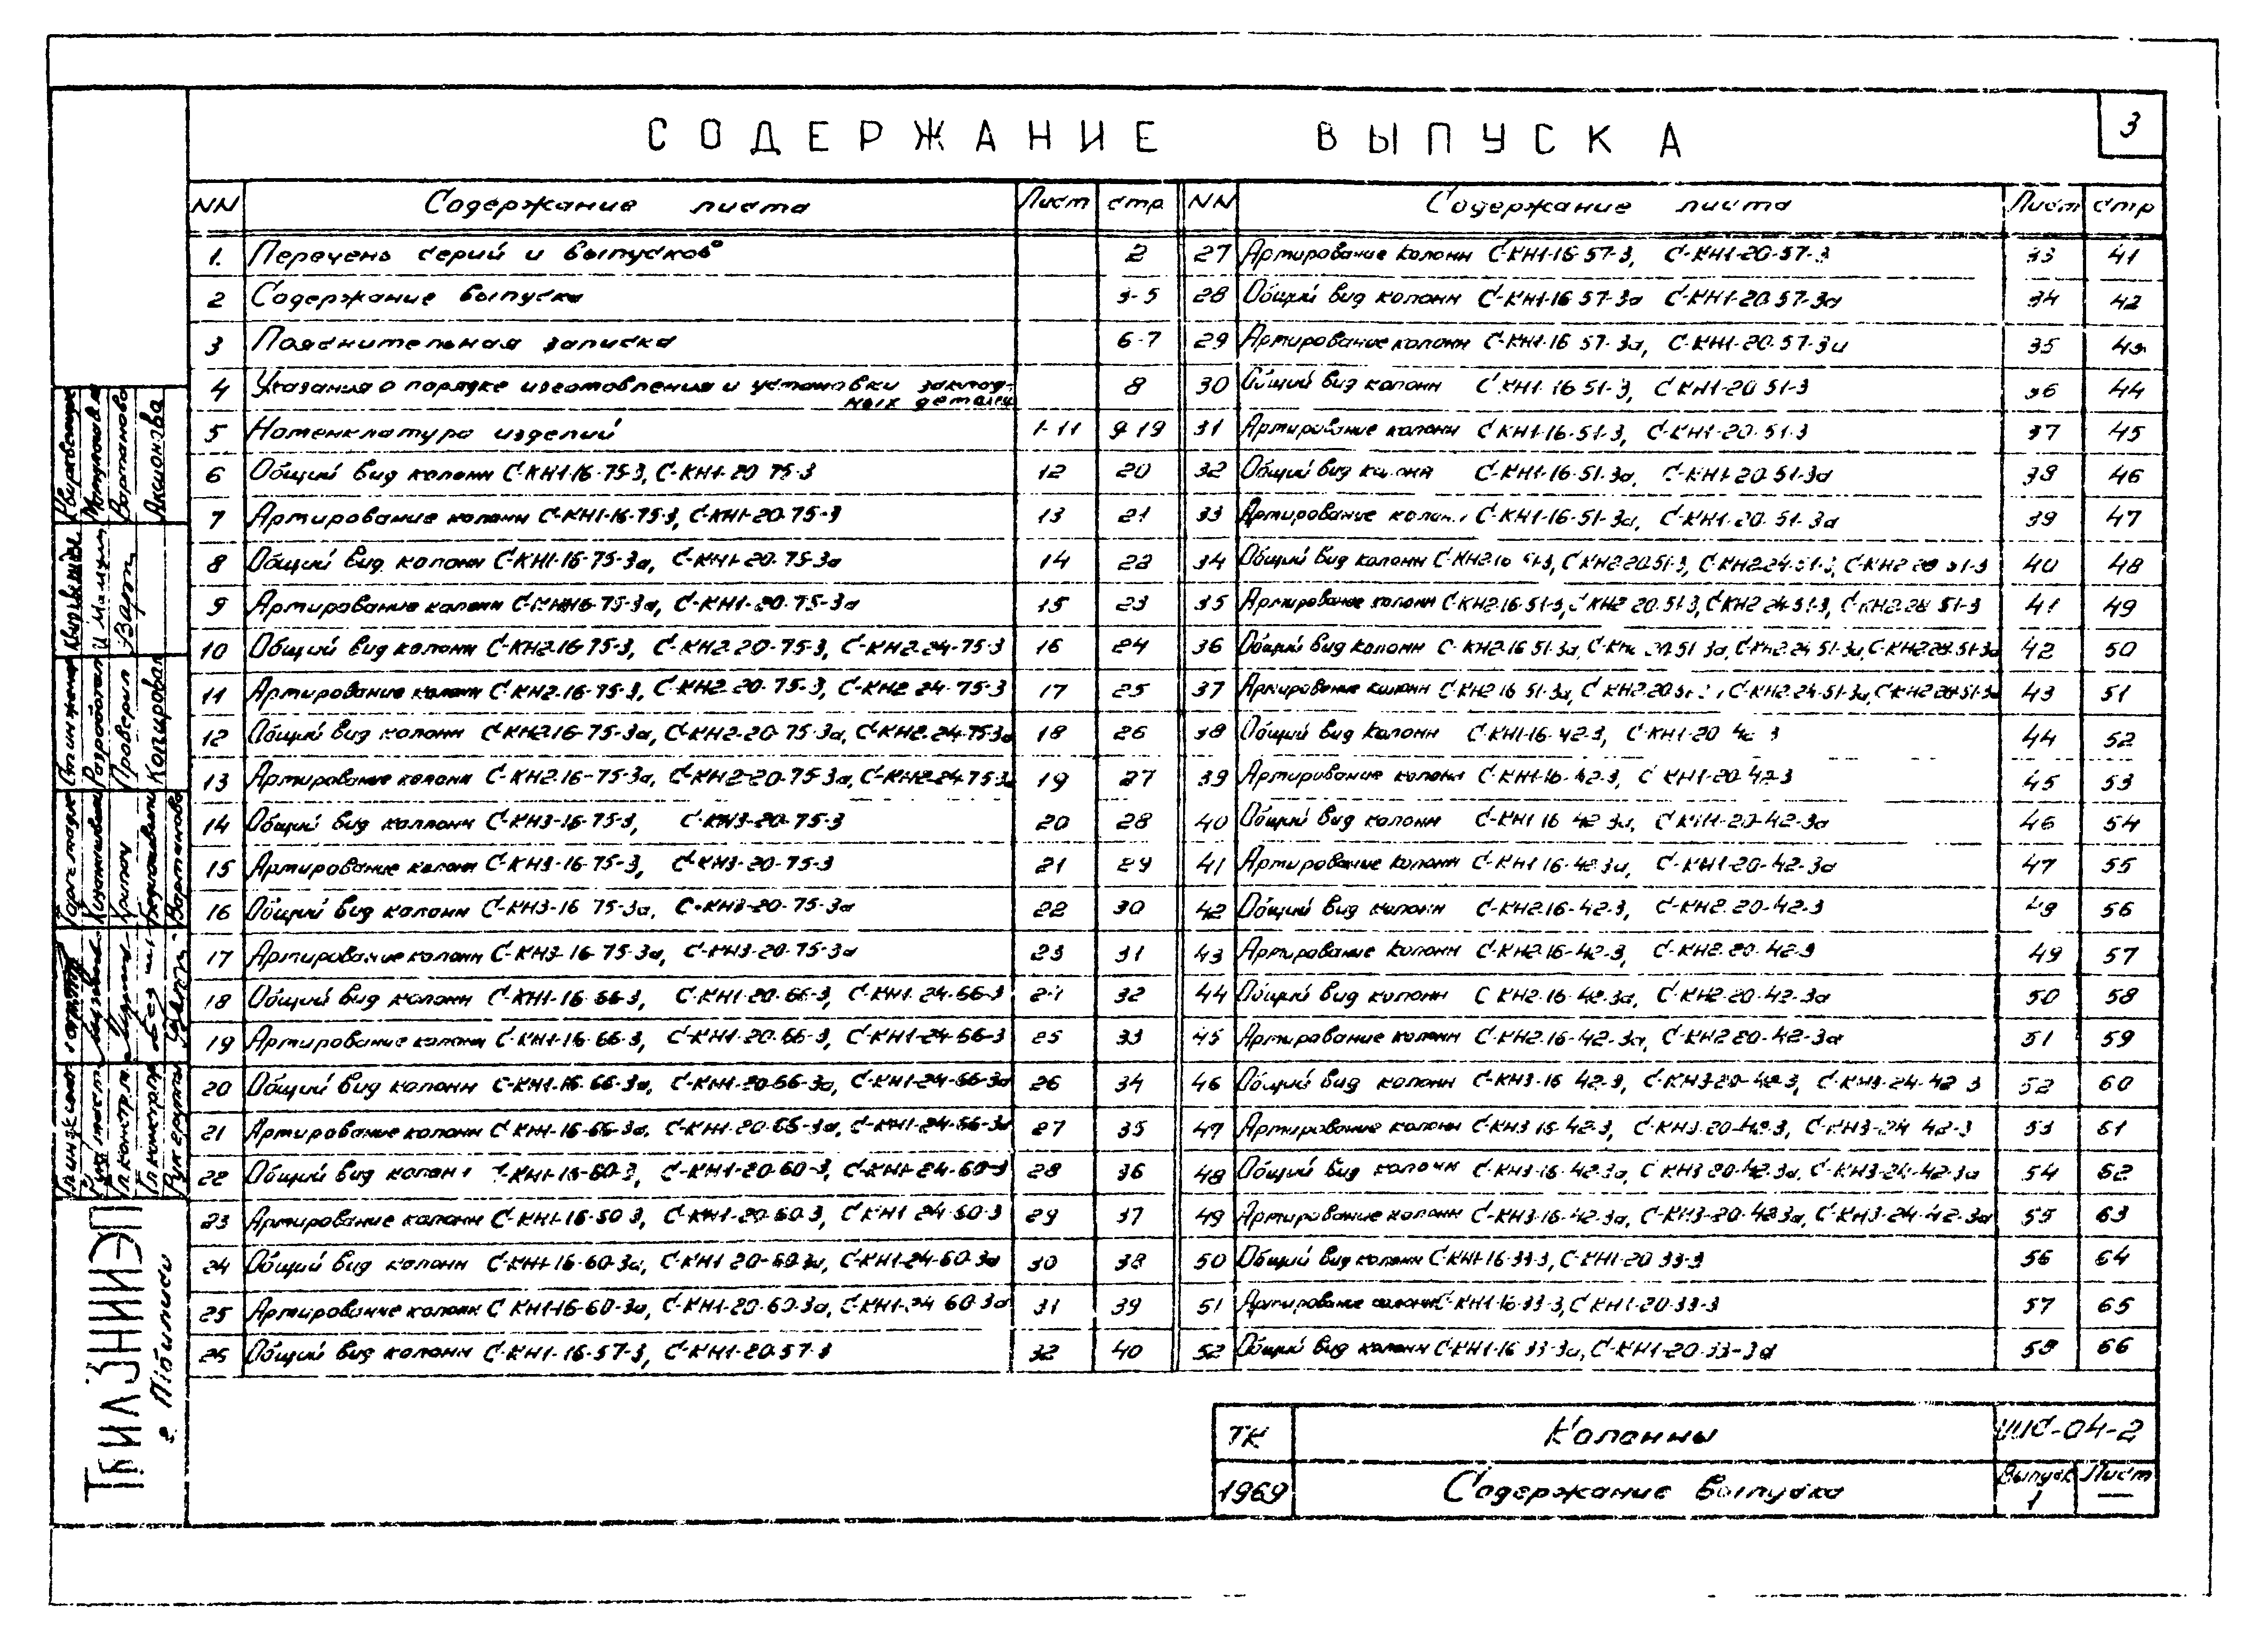 СОДЕРЖАНИЕ ВЫПУСКА
3
NN Содержание листа Лист стр
1. Перечень серий и выпусков 2
2 Содержание выпуска 3-5
3 Пояснительная записка 6-7
4 Указания о порядке изготовления и установки заклад-
ных деталей 8
5 Номенклатура изделий 1-11 9-19
6 Общий вид колонн С-КН1-16-75-3, С-КН1-20-75-3 12 20
7 Армирование колонн С-КН1-16-75-3, С-КН1-20-75-3 13 21
8 Общий вид колонн С-КН1-16-75-3а, С-КН1-20-75-3а 14 22
9 Армирование колонн С-КН1-16-75-3а, С-КН1-20-75-3а 15 23
10 Общий вид колонн С-КН2-16-75-3, С-КН2-20-75-3, С-КН2-24-75-3 16 24
11 Армирование колонн С-КН2-16-75-3, С-КН2-20-75-3, С-КН2-24-75-3 17 25
12 Общий вид колонн С-КН2-16-75-3а, С-КН2-20-75-3а, С-КН2-24-75-3а 18 26
13 Армирование колонн С-КН2-16-75-3а, С-КН2-20-75-3а, С-КН2-24-75-3а 19 27
14 Общий вид колонн С-КН3-16-75-3, С-КН3-20-75-3 20 28
15 Армирование колонн С-КН3-16-75-3, С-КН3-20-75-3 21 29
16 Общий вид колонн С-КН3-16-75-3а, С-КН3-20-75-3а 22 30
17 Армирование колонн С-КН3-16-75-3а, С-КН3-20-75-3а 23 31
18 Общий вид колонн С-КН1-16-66-3, С-КН1-20-66-3, С-КН1-24-66-3 24 32
19 Армирование колонн С-КН1-16-66-3, С-КН1-20-66-3, С-КН1-24-66-3 25 33
20 Общий вид колонн С-КН1-16-66-3а, С-КН1-20-66-3а, С-КН1-24-66-3а 26 34
21 Армирование колонн С-КН1-16-66-3а, С-КН1-20-66-3а, С-КН1-24-66-3а 27 35
22 Общий вид колонн С-КН1-16-60-3, С-КН1-20-60-3, С-КН1-24-60-3 28 36
23 Армирование колонн С-КН1-16-60-3, С-КН1-20-60-3, С-КН1-24-60-3 29 37
24 Общий вид колонн С-КН1-16-60-3а, С-КН1-20-60-3а, С-КН1-24-60-3а 30 38
25 Армирование колонн С-КН1-16-60-3а, С-КН1-20-60-3а, С-КН1-24-60-3а 31 39
26 Общий вид колонн С-КН1-16-57-3, С-КН1-20-57-3 32 40
NN Содержание листа Лист стр
27 Армирование колонн С-КН1-16-57-3, С-КН1-20-57-3 33 41
28 Общий вид колонн С-КН1-16-57-3а С-КН1-20-57-3а 34 42
29 Армирование колонн С-КН1-16-57-3а, С-КН1-20-57-3а 35 43
30 Общий вид колонн С-КН1-16-51-3, С-КН1-20-51-3 36 44
31 Армирование колонн С-КН1-16-51-3, С-КН1-20-51-3 37 45
32 Общий вид колонн С-КН1-16-51-3а, С-КН1-20-51-3а 38 46
33 Армирование колонн С-КН1-16-51-3а, С-КН1-20-51-3а 39 47
34 Общий вид колонн С-КН2-16-51-3, С-КН2-20-51-3, С-КН2-24-51-3, С-КН2-28-51-3 40 48
35 Армирование колонн С-КН2-16-51-3, С-КН2-20-51-3, С-КН2-24-51-3, С-КН2-28-51-3 41 49
36 Общий вид колонн С-КН2-16-51-3а, С-КН2-20-51-3а, С-КН2-24-51-3а, С-КН2-28-51-3а 42 50
37 Армирование колонн С-КН2-16-51-3а, С-КН2-20-51-3а, С-КН2-24-51-3а, С-КН2-28-51-3а 43 51
38 Общий вид колонн С-КН1-16-42-3, С-КН1-20-42-3 44 52
39 Армирование колонн С-КН1-16-42-3, С-КН1-20-42-3 45 53
40 Общий вид колонн С-КН1-16-42-3а, С-КН1-20-42-3а 46 54
41 Армирование колонн С-КН1-16-42-3а, С-КН1-20-42-3а 47 55
42 Общий вид колонн С-КН2-16-42-3, С-КН2-20-42-3 48 56
43 Армирование колонн С-КН2-16-42-3, С-КН2-20-42-3 49 57
44 Общий вид колонн С-КН2-16-42-3а, С-КН2-20-42-3а 50 58
45 Армирование колонн С-КН2-16-42-3а, С-КН2-20-42-3а 51 59
46 Общий вид колонн С-КН3-16-42-3, С-КН3-20-42-3, С-КН3-24-42-3 52 60
47 Армирование колонн С-КН3-16-42-3, С-КН3-20-42-3, С-КН3-24-42-3 53 61
48 Общий вид колонн С-КН3-16-42-3а, С-КН3-20-42-3а, С-КН3-24-42-3а 54 62
49 Армирование колонн С-КН3-16-42-3а, С-КН3-20-42-3а, С-КН3-24-42-3а 55 63
50 Общий вид колонн С-КН1-16-33-3, С-КН1-20-33-3 56 64
51 Армирование колонн С-КН1-16-33-3, С-КН1-20-33-3 57 65
52 Общий вид колонн С-КН1-16-33-3а, С-КН1-20-33-3а 58 66
ТК Колонны ИИС-04-2
1969 Содержание выпуска Выпуск 1 Лист —
ТбилЗНИИЭП
г. Тбилиси
Гл. контр.
Рук. группы
Ст. инженер
Разработал
Проверил
Копировал
Вартанова
Аксионова